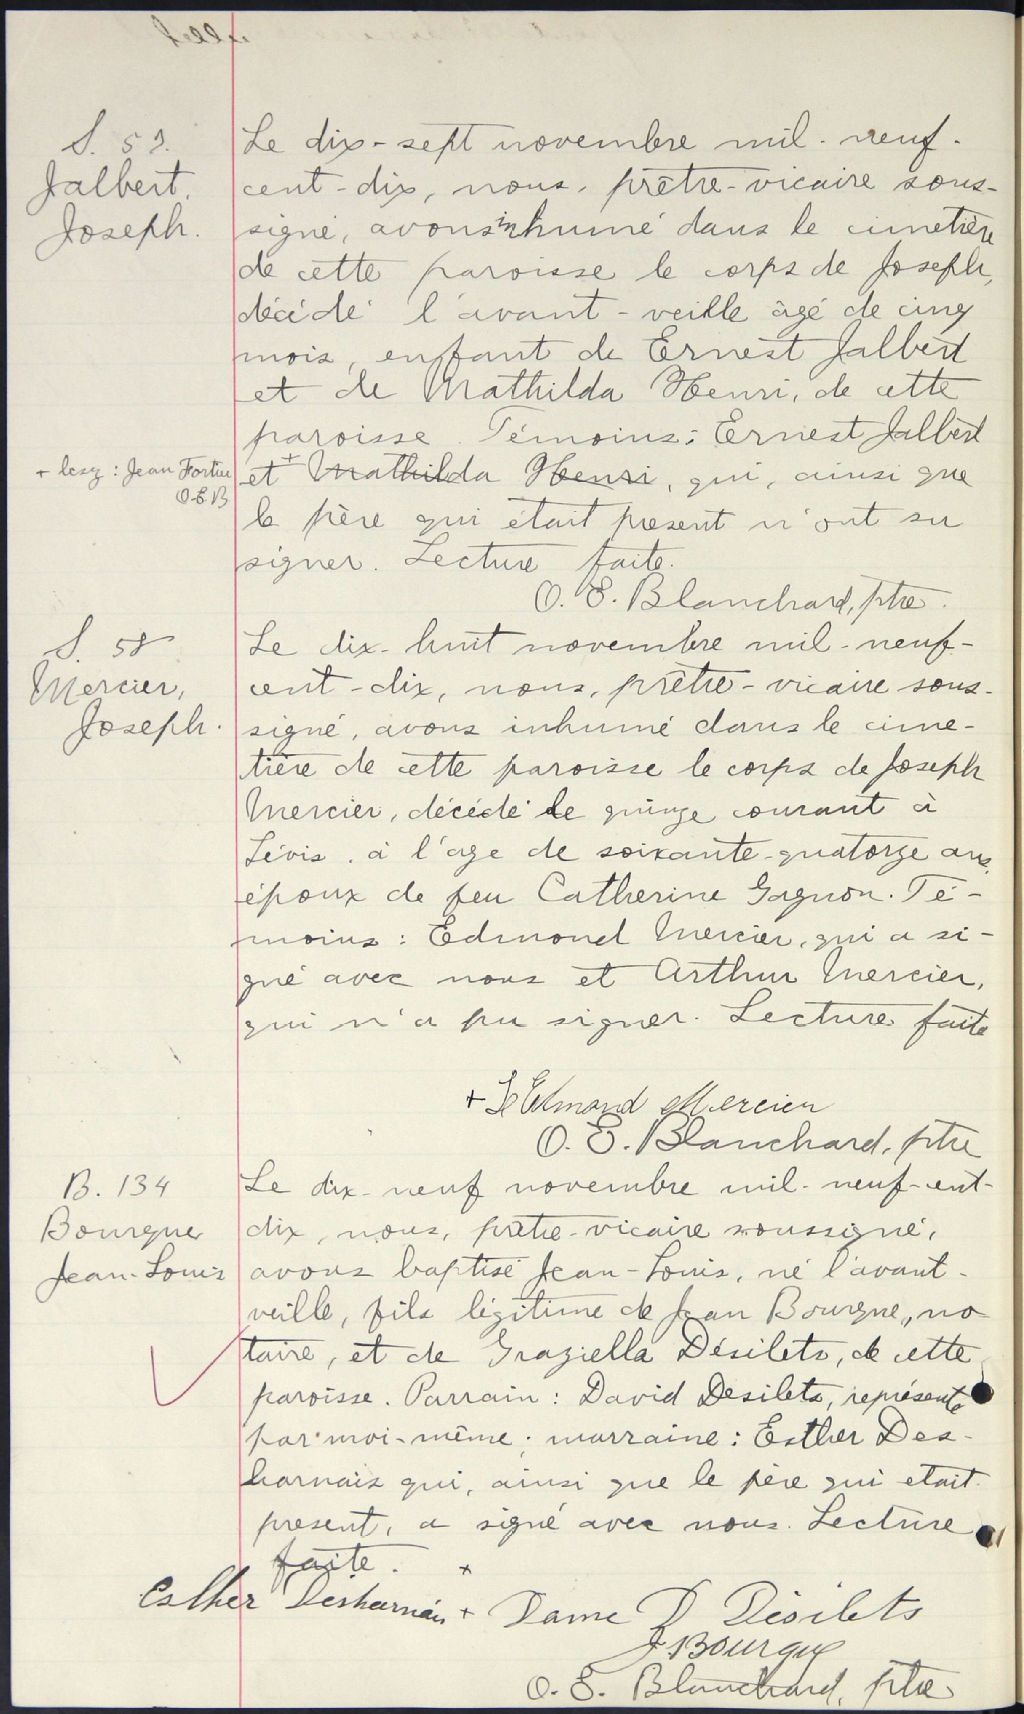 S. 57.
Jalbert,
Joseph.
Le dix-sept novembre mil-neuf-
cent-dix, nous, prêtre-vicaire sous-
signé, avons inhumé dans le cimetière
de cette paroisse le corps de Joseph,
décédé l'avant-veille âgé de cinq
mois, enfant de Ernest Jalbert
et de Mathilda Henri, de cette
paroisse. Témoins: Ernest Jalbert
+ lesz: Jean Fortier
O.E.B
et + Mathilda Henri, qui, ainsi que
le père qui était present n'ont su
signer. Lecture faite.
O. E. Blanchard, ptre.
S. 58
Mercier,
Joseph.
Le dix-huit novembre mil-neuf-
cent-dix, nous, prêtre-vicaire sous-
signé, avons inhumé dans le cime-
tière de cette paroisse le corps de Joseph
Mercier, décédé le quinze courant à
Lévis, à l'age de soixante-quatorze ans,
époux de feu Catherine Gagnon. Té-
moins: Edmond Mercier, qui a si-
gné avec nous et Arthur Mercier,
qui n'a pu signer. Lecture faite
+ Edmond Mercier
O. E. Blanchard, ptre
B. 134
Bourque
Jean-Louis
Le dix-neuf novembre mil-neuf-cent-
dix, nous, prêtre-vicaire soussigné,
avons baptisé Jean-Louis, né l'avant-
veille, fils légitime de Jean Bourque, no-
taire, et de Graziella Désilets, de cette
paroisse. Parrain: David Desilets, représenté
par moi-même; marraine: Esther Des-
harnais qui, ainsi que le père qui etait
present, a signé avec nous. Lecture
faite. +
Esther Desharnais + Dame D Désilets
J. Bourque
O. E. Blanchard, ptre